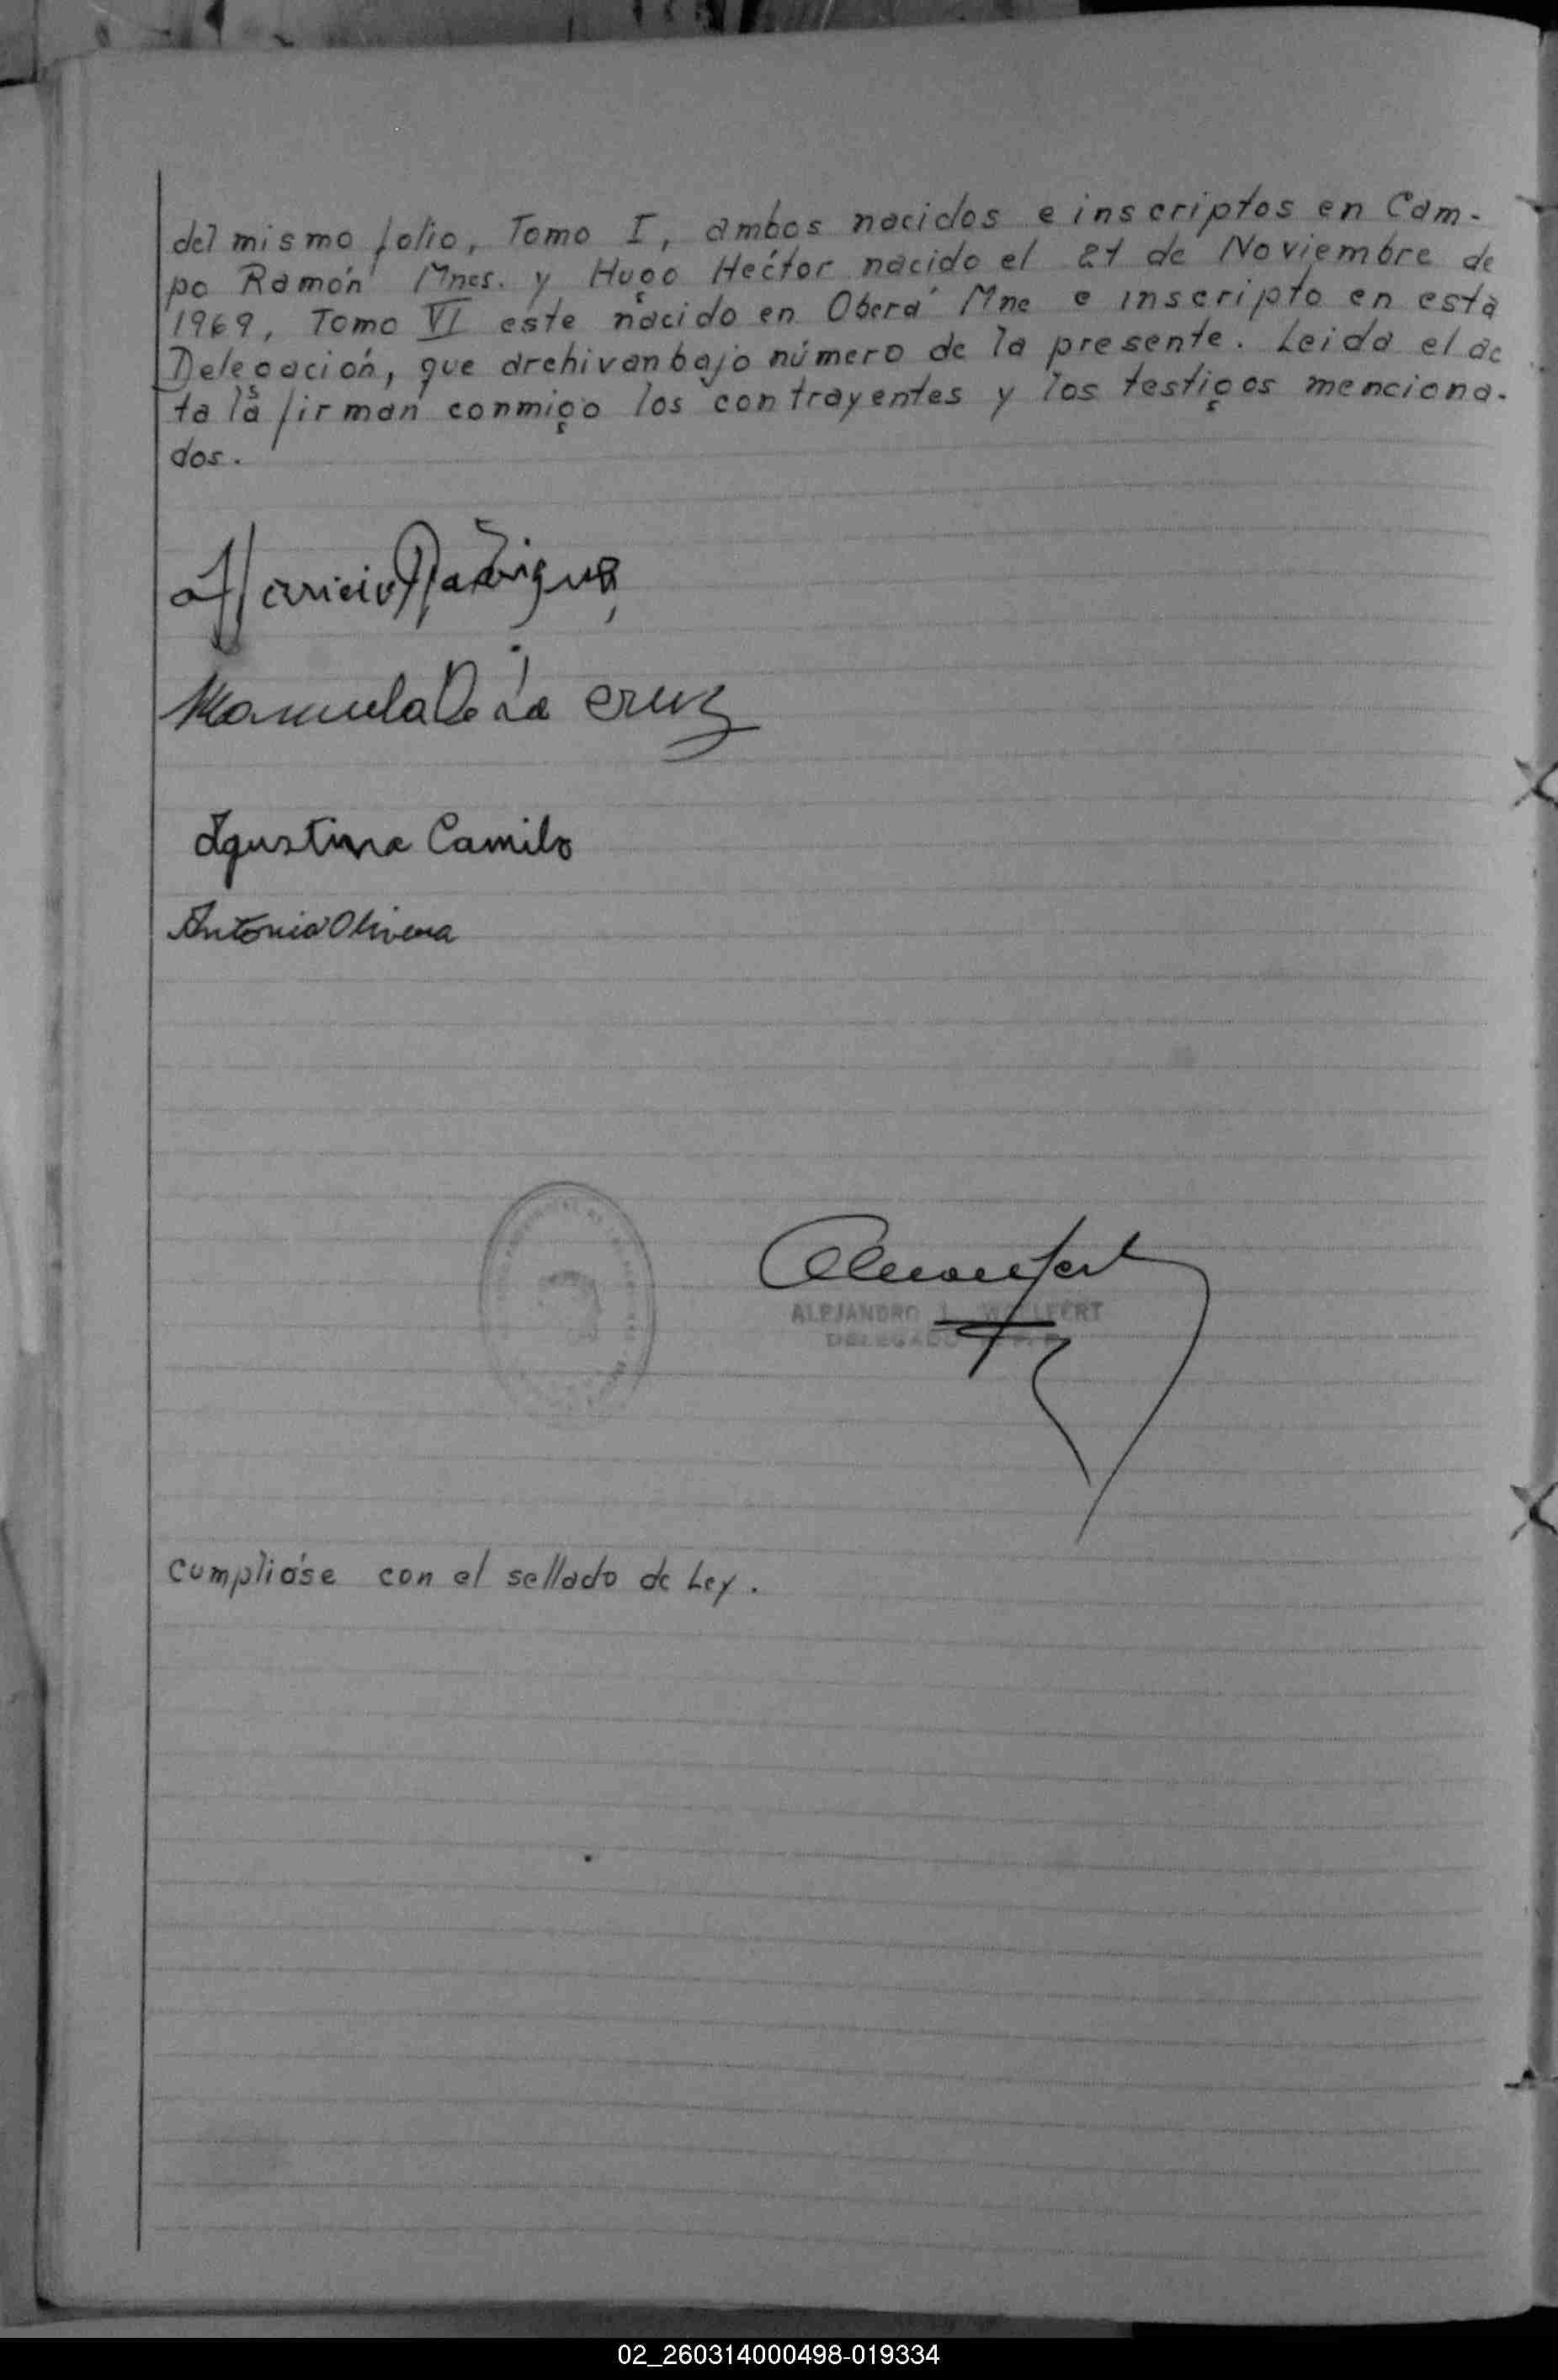 del mismo folio, Tomo I, ambos nacidos e inscriptos en Cam-
po Ramón Mnes. y Hugo Héctor nacido el 21 de Noviembre de
1969, Tomo VI este nacido en Oberá Mne e inscripto en esta
Delegación, que archivan bajo número de la presente. Leida el ac
ta la firman conmigo los contrayentes y los testigos menciona-
dos.
Manuela De La Cruz
Agustina Camilo
Antonia Olivera
ALEJANDRO L. WOLFERT
DELEGADO
cumplióse con el sellado de Ley.
02_260314000498-019334